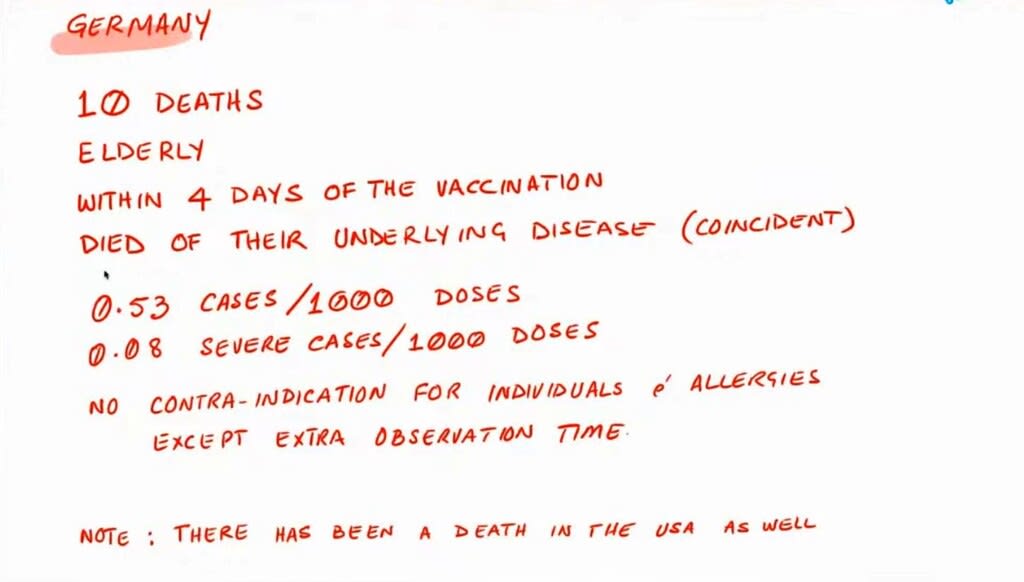 GERMANY
10 DEATHS
ELDERLY
WITHIN 4 DAYS OF THE VACCINATION
DIED OF THEIR UNDERLYING DISEASE (COINCIDENT)
0.53 CASES/1000 DOSES
0.08 SEVERE CASES/1000 DOSES
NO CONTRA-INDICATION FOR INDIVIDUALS ē ALLERGIES
EXCEPT EXTRA OBSERVATION TIME.
NOTE : THERE HAS BEEN A DEATH IN THE USA AS WELL